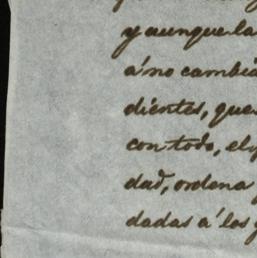 y aunque la
á no cambia
dientes, que
con todo, el
dad, ordena
dadas á los